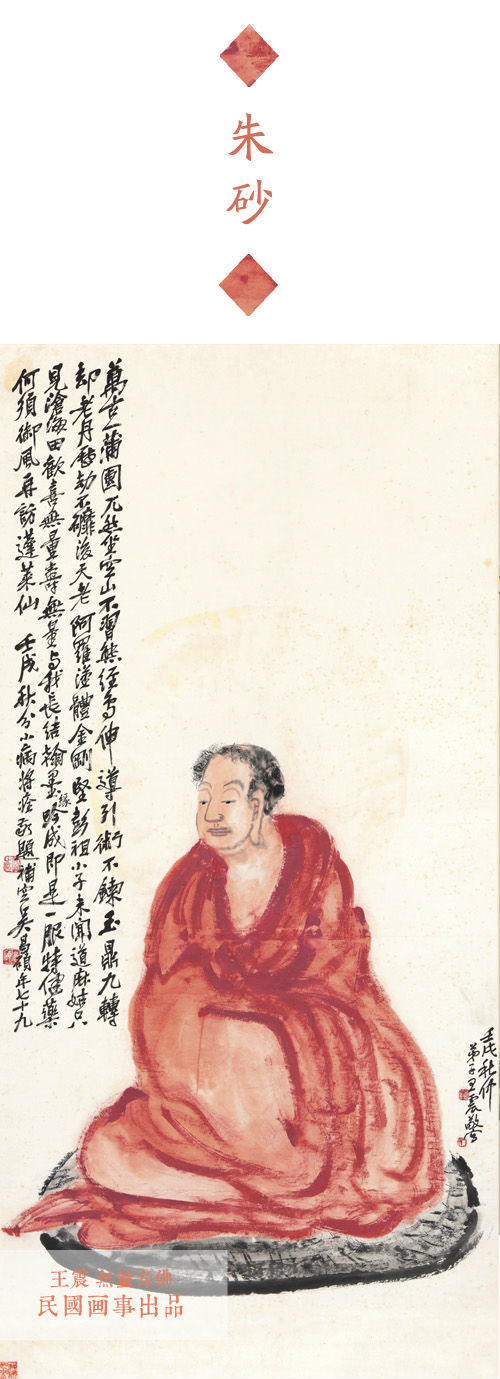 朱
砂
萬古一蒲團兀然坐空山不習熊經鳥伸導引術不鍊玉鼎九轉
却老丹歷劫不磷後天老阿羅漢體金剛堅彭祖小子未聞道麻姑只
見滄海田歡喜無量壽無量与我長結翰墨緣吟成即是一服特健藥
何須御風再訪蓬萊仙 壬戌秋分小病將痊敬題補空吳昌碩年七十九
壬戌秋仲
弟子王震敬寫
王震 無量壽佛
民國画事出品